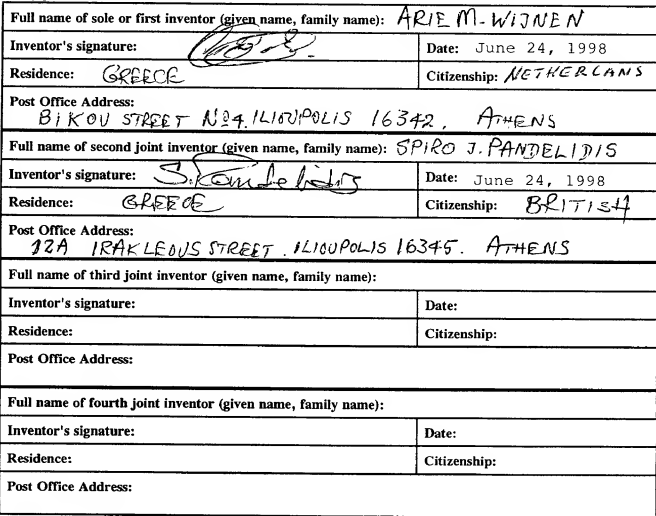 Full name of sole or first inventor (given name, family name): ARIE M- WIJNEN
Inventor's signature: Date: June 24, 1998
Residence: GREECE Citizenship: NETHERLANS
Post Office Address:
BIKOU STREET No4. ILIOUPOLIS 16342. ATHENS
Full name of second joint inventor (given name, family name): SPIRO J. PANDELIDIS
Inventor's signature: S. Pandelidis Date: June 24, 1998
Residence: GREECE Citizenship: BRITISH
Post Office Address:
12A IRAKLEOUS STREET. ILIOUPOLIS 16345. ATHENS
Full name of third joint inventor (given name, family name):
Inventor's signature: Date:
Residence: Citizenship:
Post Office Address:
Full name of fourth joint inventor (given name, family name):
Inventor's signature: Date:
Residence: Citizenship:
Post Office Address: